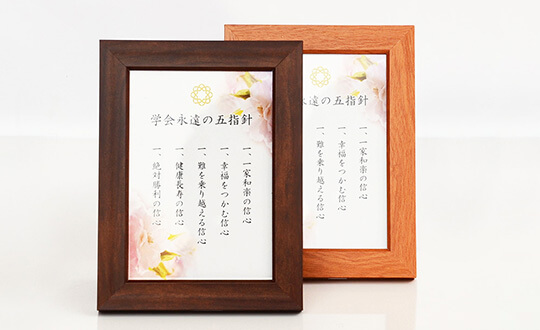 学会永遠の五指針
一、一家和楽の信心
一、幸福をつかむ信心
一、難を乗り越える信心
一、健康長寿の信心
一、絶対勝利の信心
永遠の五指針
一、一家和楽の信心
一、幸福をつかむ信心
一、難を乗り越える信心